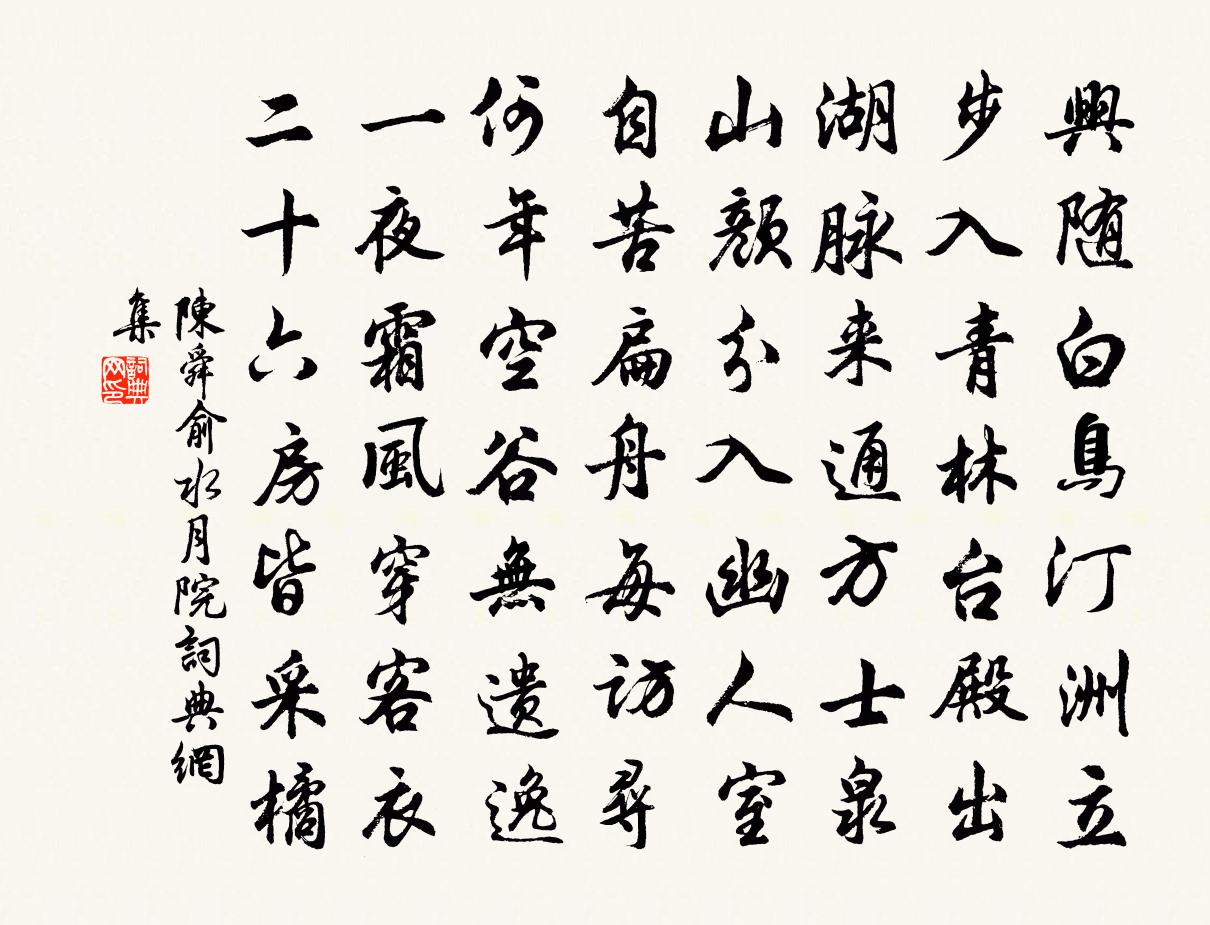 興随白鳥汀洲立
步入青林台殿出
湖脉来通方士泉
山顏分入幽人室
自苦扁舟每訪尋
何年空谷無遺逸
一夜霜風穿客衣
二十六房皆采橘
陳舜俞水月院詞典網
集
詞典
网印